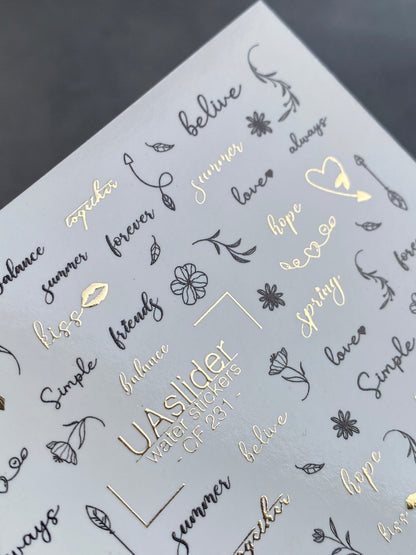 belive
always
summer
together
love
forever
hope
balance
summer
kiss
friends
spring
love
balance
Simple
Simple
UAslider
water stickers
- CF 231 -
belive
hope
summer
together
kiss